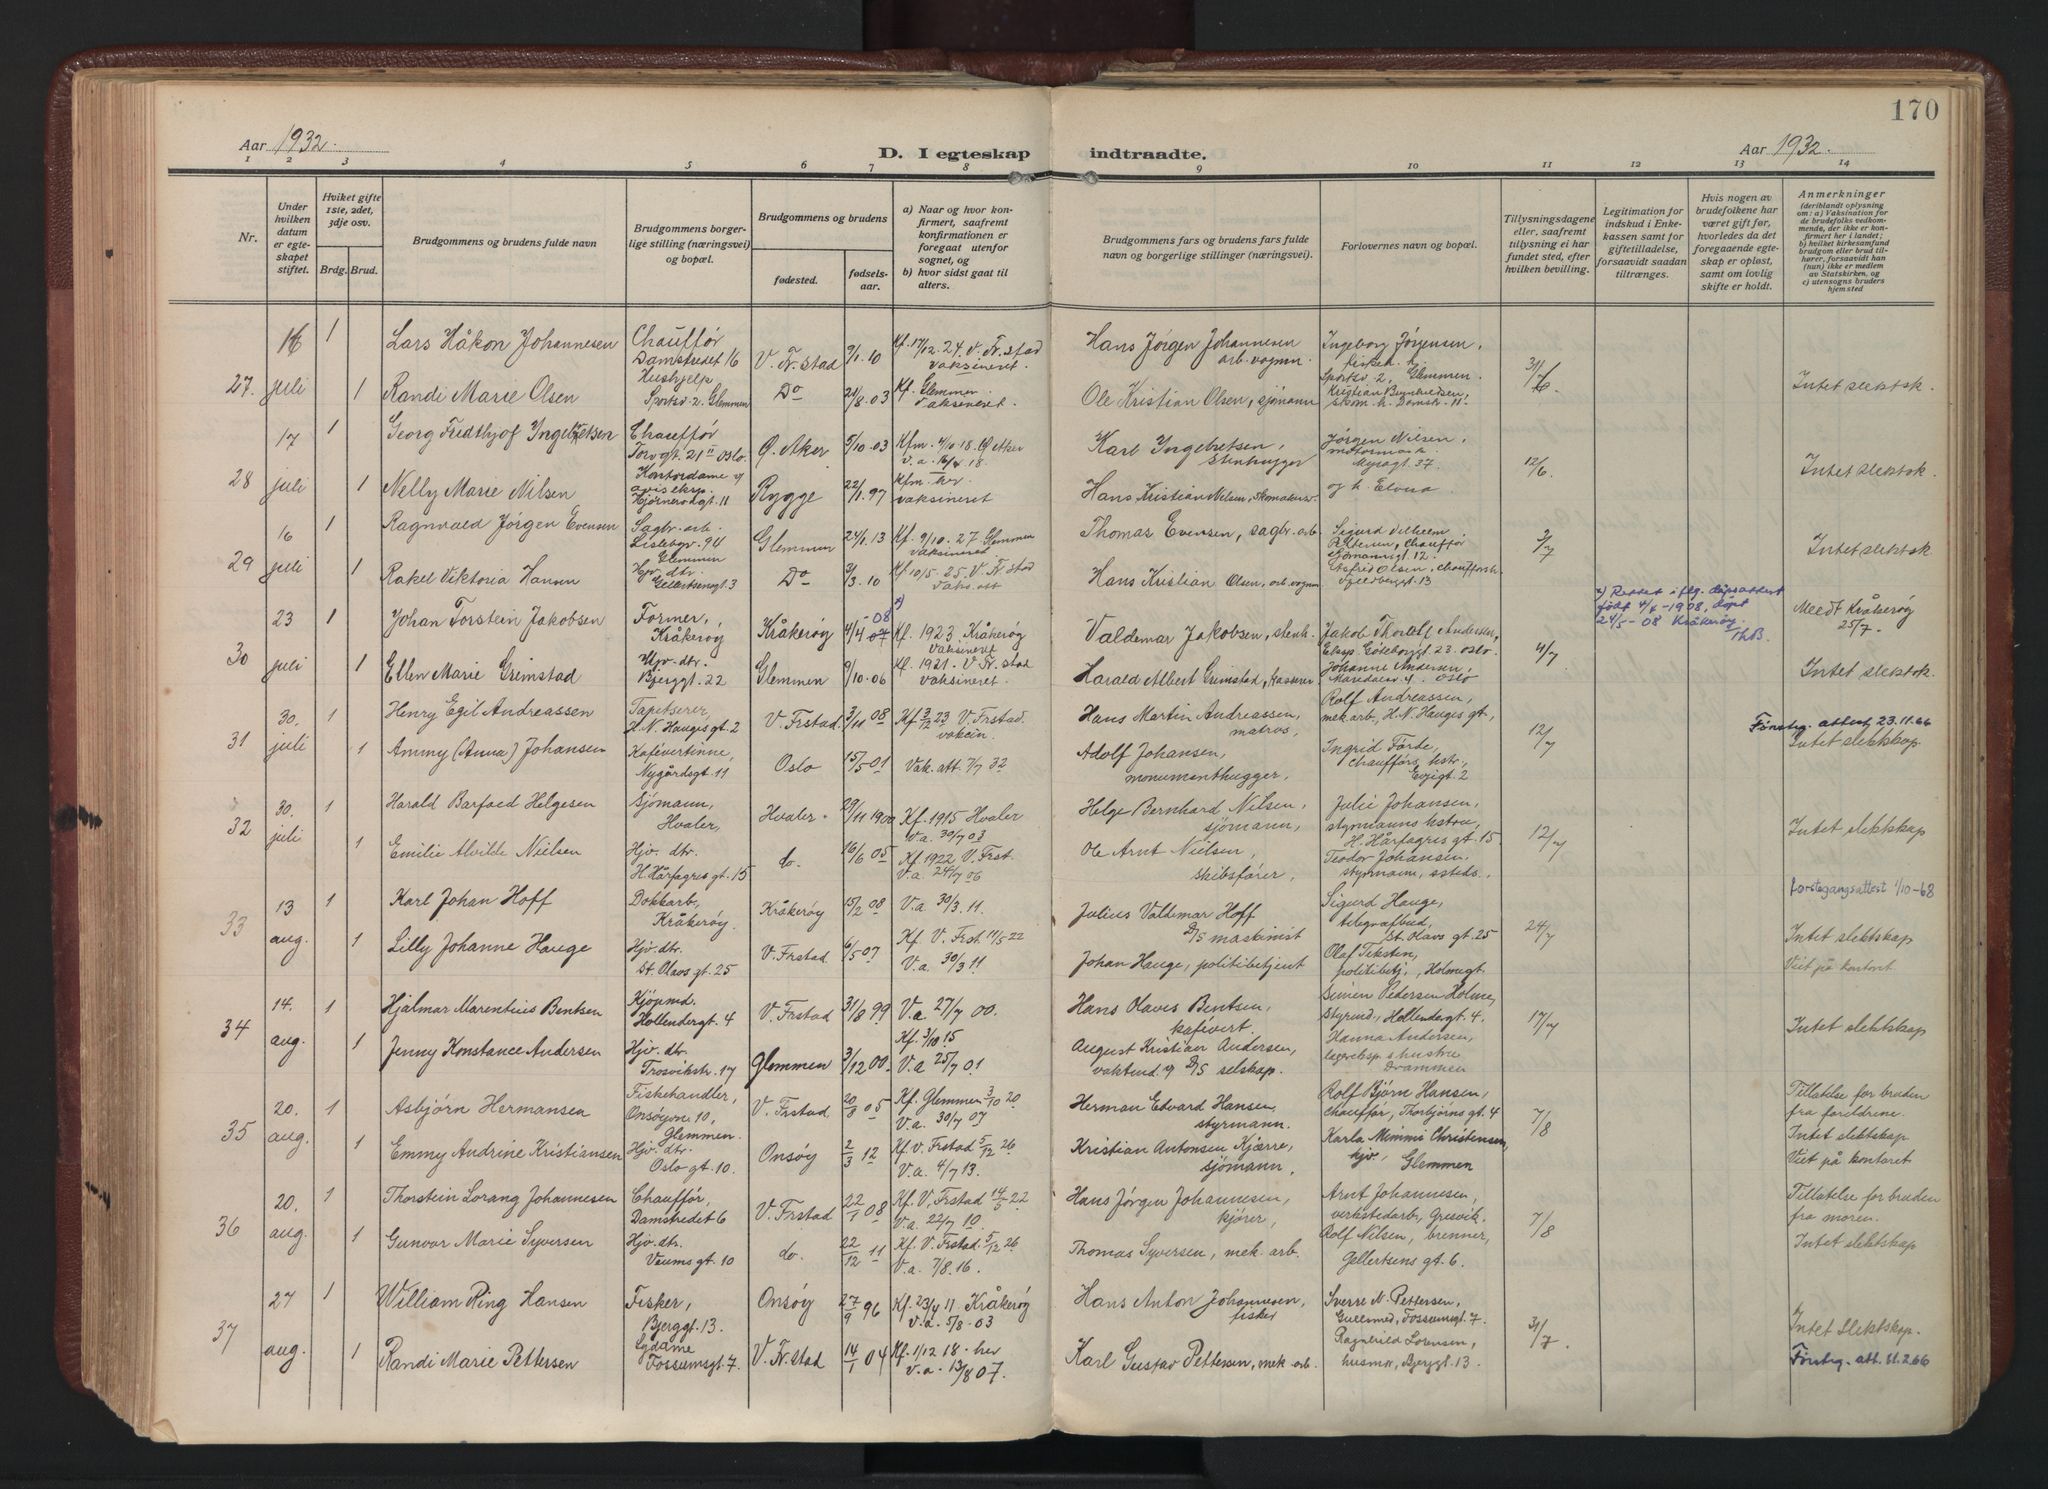 170
Aar 1932.
D. I egteskap indtraadte.
Aar 1932.
1 2 3 4 5 6 7 8 9 10 11 12 13 14
Nr.
Under hvilken datum er egteskapet stiftet.
Hviket gifte 1ste, 2det, 3dje osv.
Brdg. Brud.
Brudgommens og brudens fulde navn
Brudgommens borgerlige stilling (næringsvei) og bopæl.
Brudgommens og brudens
fødested.
fødselsaar.
a) Naar og hvor konfirmert, saafremt konfirmationen er foregaat utenfor sognet, og
b) hvor sidst gaat til alters.
Brudgommens fars og brudens fars fulde navn og borgerlige stillinger (næringsvei).
Forlovernes navn og bopæl.
Tillysningsdagene eller, saafremt tillysning ei har fundet sted, efter hvilken bevilling.
Legitimation for indskud i Enkekassen samt for giftetilladelse, forsaavidt saadan tiltrænges.
Hvis nogen av brudefolkene har været gift før, hvorledes da det foregaaende egteskap er opløst, samt om lovlig skifte er holdt.
Anmerkninger
(deriblandt oplysning om: a) Vaksination for de brudefolks vedkommende, der ikke er konfirmert her i landet; b) hvilket kirkesamfund brudgom eller brud tilhører, forsaavidt han (hun) ikke er medlem av Statskirken, og c) utensogns bruders hjemsted
27. 16 juli 1 Lars Håkon Johannesen Chauffør Damstredet 16 V. Fr.stad 9/1.10 Kf. 17/12.24. V. Fr.stad vaksineret. Hans Jørgen Johannesen arb.vognm. Ingeborg Jørgensen, fiskeh. hj. Sportsv. 2, Glemmen.
1 Randi Marie Olsen Hushjelp Sportsv. 2. Glemmen Do 21/8.03 Kf. Glemmen vaksineret. Ole Kristian Olsen, sjømann Skom. h. Damstr. 11. Intet slektsk.
28 17 juli 1 Georg Fridthjof Ingebretsen Chauffør Torvgt. 21 II Oslo. Ø. Aker 5/10.03 Kfm. 4/10 18. Ø Aker V.a. 16/4 18. Karl Ingebretsen, Stenhugger Jørgen Nilsen, Myragt. 37. 12/6
1 Nelly Marie Nilsen Kontordame Hjørnerødgt. 11 Rygge 22/1.97 Kfm. her vaksineret Hans Kristian Nilsen, Skomakersv. og h. Elvira. Intet slektsk.
29 16 juli 1 Ragnvald Jørgen Evensen Sagbr. arb. Lislebyv. 94 Glemmen Glemmen 24/1.13 Kf. 9/10.27 Glemmen vaksineret. Thomas Evensen, sagbr. arb. Sigurd Vilhelm Chauffør Sjømannsgt. 12. 3/7
1 Rakel Viktoria Hansen Hjv. dtr. Gellertsensgt. 3 Do 3/3.10 Kf. 10/5.25. V. Fr.stad Vaks. att Hans Kristian Olsen, arb.vognm Olsen, chaufførsh. Fjeldberggt. 13 Intet slektsk
30 23 juli 1 Johan Torstein Jakobsen Former, Kråkerøy Kråkerøy 4/4 07 -08 x) Kf. 1923 Kråkerøy vaksineret Valdemar Jakobsen, stenh. Jakob Thorolf Andersen, Eksp. Göteborggt. 23. Oslo. 4/7
x) Rettet i flg. dåpsattest født 4/4-1908, døpt 24/5-08 Kråkerøy. ThB.
Meldt Kråkerøy 25/7.
1 Ellen Marie Grimstad Hjv. dtr. Bjerggt. 22 Glemmen 9/10.06 Kf. 1921. V. Fr.stad vaksineret. Harald Albert Grimstad, kasserer Johanne Andersen, Maridalsv. 4. Oslo Intet slektsk.
31 30. juli 1 Henry Egil Andreassen Tapetserer, H. N. Haugis gt. 2 V. Frstad 3/11 08 Kf 3/12 23 V. Frstad. vaksin. Hans Martin Andreassen, matros, Rolf Andreassen, mek arb, H. N. Hauges gt, 12/7 Førstег. attest 23.11.66
1 Ammy (Anna) Johansen Kafévertinne, Nygårdsgt. 11 Oslo 15/5 01 Vak. att. 7/7 32 Adolf Johansen, monumenthugger, Ingrid Førde, chaufførs hstr, Evjigt. 2 Intet slektskap.
32 30. juli 1 Harald Barfoed Helgesen Sjømann, Hvaler, Hvaler. 29/11 1900 Kf. 1915 Hvaler V.a. 30/7 03 Helge Bernhard Nilsen, sjømann, Julie Johansen, styrmanns hstru, H. Hårfagris gt. 15 12/7 Intet slektskap
1 Emilie Alvilde Nielsen Hjv. dtr. H. Hårfagris gt. 15 do. 16/6 05 Kf 1922 V. Frst. V.a. 24/7 06 Ole Arnt Nielsen, skibsfører, Teodor Johansen, styrmann, ssteds.
33 13 aug. 1 Karl Johan Hoff Dokkarb, Kråkerøy. Kråkerøy 15/2 08 V.a. 30/3.11. Julius Valdemar Hoff D/S maskinist Sigurd Hauge, telegrafbud, St. Olavs gt. 25 24/7 førstegangsattest 1/10-68
1 Lilly Johanne Hauge Hjv. dtr. St. Olavs gt. 25 V. Frstad 6/5 07 Kf. V. Frst. 14/5 22 V.a. 30/3 11 Johan Hauge, politibetjent Olaf Teksten, politibetj., Holmegt. Intet slektskap Viet på kontoret
34 14. aug. 1 Hjalmar Marentius Bentsen Kjøpmd. Hollendergt. 4 V. Frstad 31/8 99 V.a. 27/7 00. Hans Olaves Bentsen, kafévert. Simen Pedersen Holme, Styrmd, Hollendergt. 4. 17/7
1 Jenny Konstance Andersen Hjv. dtr. Trosvikstr. 17 Glemmen 3/12 00 Kf. 3/10 15 V.a 25/7 01 August Kristian Andersen, vaktmd v/ D/S selskap. Hanna Andersen, lagereksp.s hustru Drammen Intet slektskap
35 20. aug. 1 Asbjørn Hermansen Fiskehandler, Onsøyvn 10, Glemmen. V. Frstad 20/9 05 Kf. Glemmen 3/10 20 V.a. 30/7 07 Herman Edvard Hansen, styrmann. Rolf Bjørn Hansen, chauffør, Torbjørns gt. 4 7/8 Tillatelse for bruden fra foreldrene.
1 Emmy Andrine Kristiansen Hjv. dtr. Oslo gt. 10. Onsøy 2/3 12 Kf. V. Frstad 5/12 26 V.a. 4/7 13. Kristian Antonsen Kjærre, sjømann, Karla Mimmi Christensen, hjv., Glemmen Intet slektskap Viet på kontoret
36 20. aug. 1 Thorstein Lorang Johannesen Chauffør, Damstredet 6 V. Frstad 22/1 08 Kf. V. Frstad 14/5 22 V.a. 22/7 10. Hans Jørgen Johannesen, kjører, Arnt Johannesen, verkstedarb, Gresvik. 7/8 Tillatelse for bruden fra moren.
1 Gunvor Marie Syversen Hjv. dtr. Vaumsgt. 10 do. 22/12 11 Kf. V. Frstad 5/12 26 V.a. 7/8.16. Thomas Syversen, mek. arb. Rolf Nilsen, brenner, Gellertsens gt. 6. Intet slektskap
37 27 aug. 1 William Ring Hansen Fisker, Bjerggt. 13. Onsøy 27/9 96 Kf. 23/4 11 Kråkerøy V.a. 5/8.03 Hans Anton Johannesen, fisker Sverre N. Pettersen, Gullsmed, Fossumsgt. 7 31/7 Intet Slektskap.
1 Randi Marie Pettersen Sydame Fossumsgt. 7. V. Fr.stad 14/1 04 Kf. 1/12 18. her V.a. 13/8 07. Karl Gustav Pettersen, mek arb. Ragnhild Lorensen, husmor, Bjerggt. 13. Førsteg. att. 11.2.66